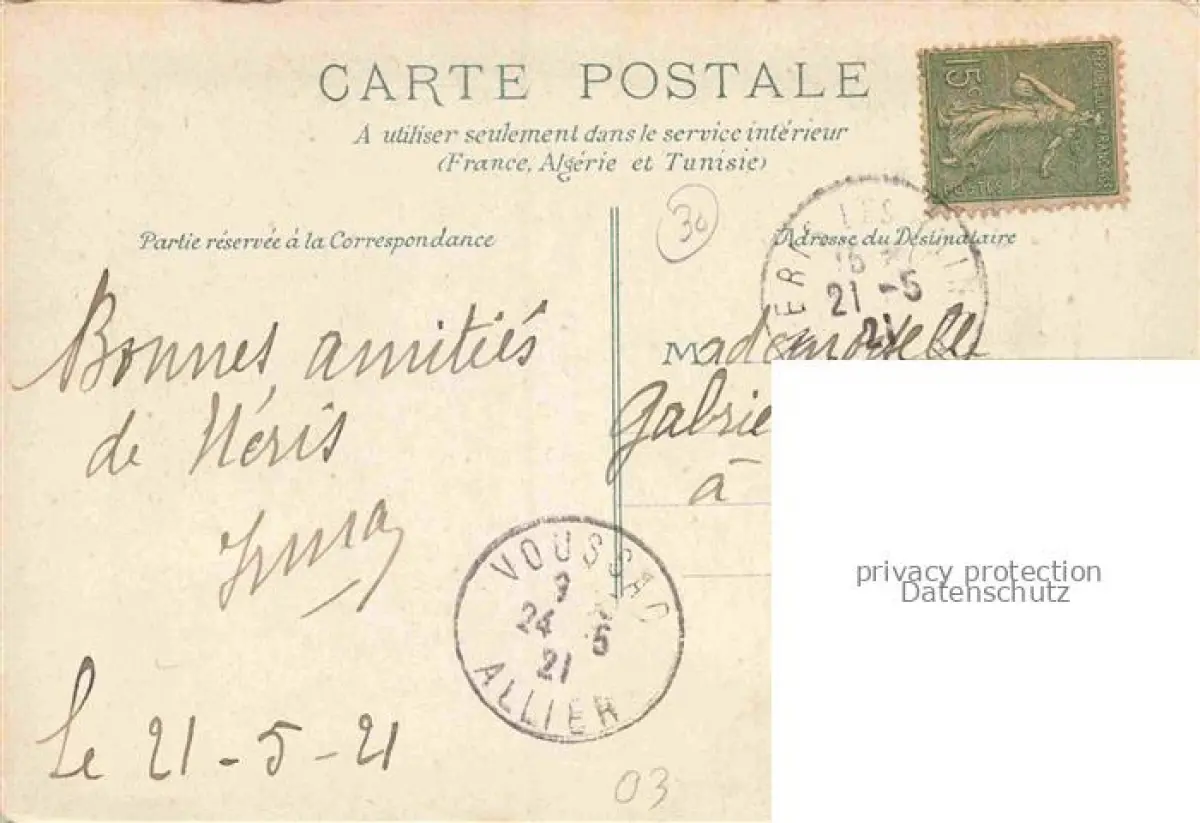 CARTE POSTALE
A utiliser seulement dans le service intérieur
(France, Algérie et Tunisie)
15c
POSTES
30
Partie réservée à la Correspondance
Adresse du Destinataire
LES
21 -5
21
Bonnes amitiés
de Néris
Le 21-5-21
Mademoiselle
Gabrie
à
VOUSSAC
24 5
21
ALLIER
03
privacy protection
Datenschutz